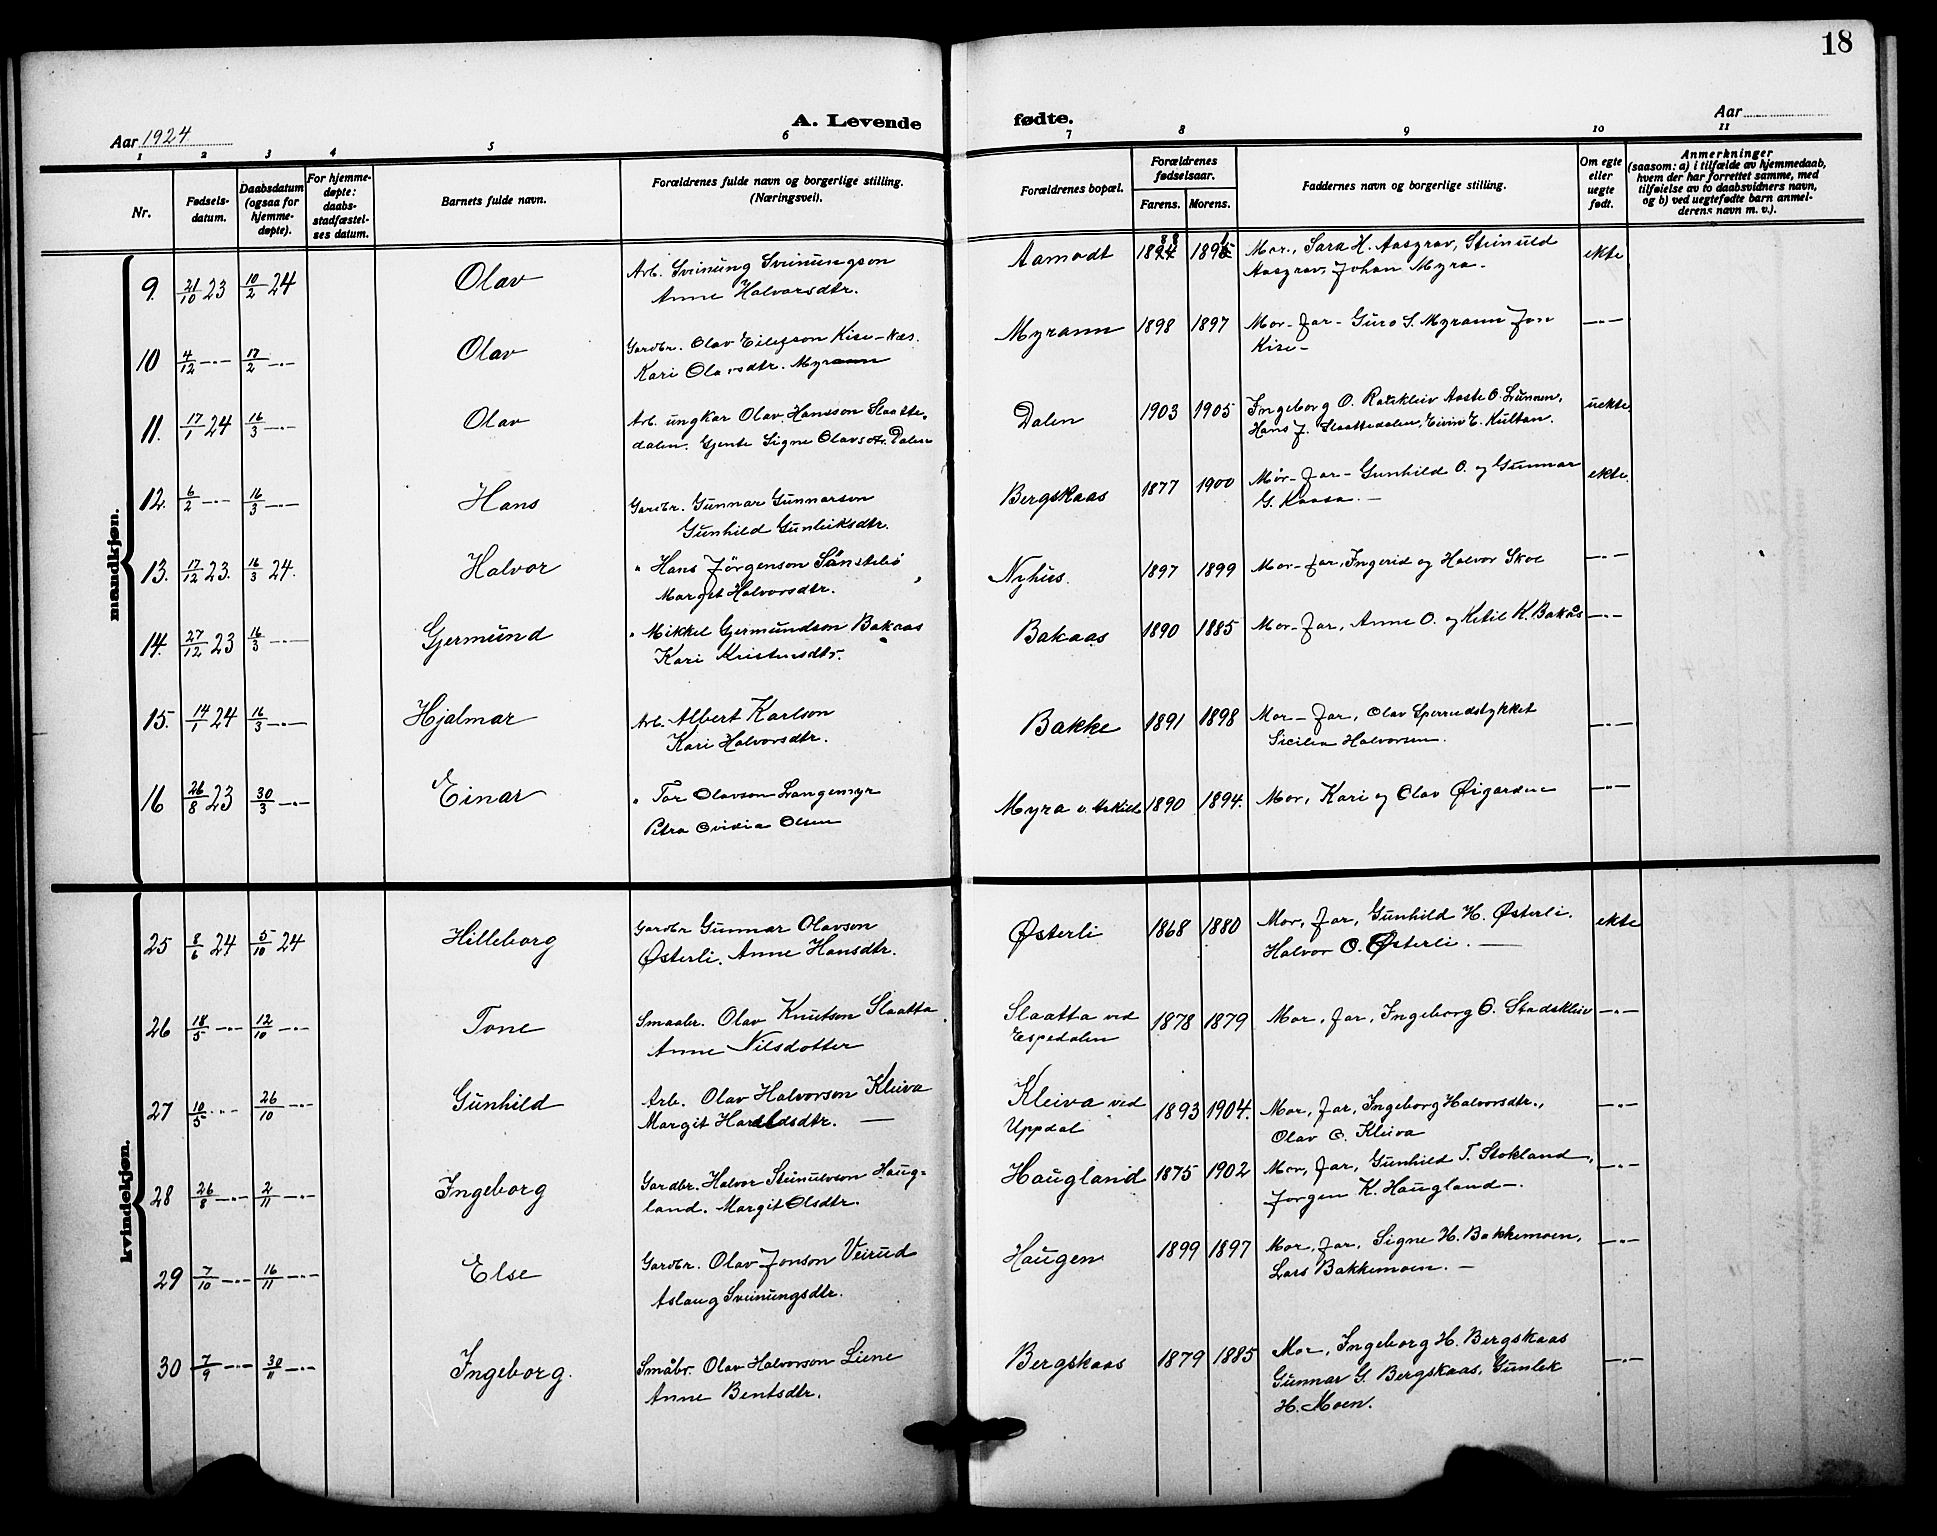 18
Aar 1924
A. Levende
fødte.
Aar
1 2 3 4 5 6 7 8 9 10 11
Nr.
Fødsels-
datum.
Daabsdatum
(ogsaa for
hjemme-
døpte).
For hjemme-
døpte:
daabs-
stadfæstel-
ses datum.
Barnets fulde navn.
Forældrenes fulde navn og borgerlige stilling.
(Næringsvei).
Forældrenes bopæl.
Forældrenes
fødselsaar.
Farens. Morens.
Faddernes navn og borgerlige stilling.
Om egte
eller
uegte
født.
Anmerkninger
(saasom: a) i tilfælde av hjemmedaab,
hvem der har forrettet samme, med
tilføielse av to daabsvidners navn,
og b) ved uegtefødte barn anmel-
derens navn m. v.).
mandkjøn.
9. 21/10 23 10/2 24 Olav Arb. Sveinung Sveinungson
Anne Halvorsdtr.
Aamodt Mor, Sara H. Aasgrav, Steinuld
Aasgrav, Johan Myra.
ekte
10 4/12 —"— 17/2 —"— Olav Gardbr. Olav Eilefson Kise - Næs.
Kari Olavsdtr. Myrann
Myrann 1898 1897 Mor - Far - Guro S. Myrann Jon
Kise -
—"—
11. 17/1 24 16/3 —"— Olav Arb. ungkar Olav Hansson Slaatte-
dalen. Gjente Signe Olavsdtr. Dalen
Dalen 1903 1905 Ingeborg O. Aaste O. Lunnen,
Hans J. Slaattedalen, Eivin E. Kultan.
uekte
12. 6/2 —"— 16/3 —"— Hans Gardbr. Gunnar Gunnarson
Gunhild Gunleiksdtr.
Bergskaas 1877 1900 Mor - Far - Gunhild O. og Gunnar
G. Kaasa. —
ekte.
13. 17/12 23. 16/3 24. Halvor " Hans Jörgenson Sönstebö
Margit Halvorsdtr.
Nyhus. 1897 1899 Mor - Far, Ingerid og Halvor Skoe
—"—
14. 27/12 23 16/3 —"— Germund " Mikkel Germundson Bakaas
Kari Kristensdtr.
Bakaas 1890 1885 Mor - Far, Anne O. og Ketil K. Bakås
—"—
15. 14/1 24 16/3 —"— Hjalmar Arb. Albert Karlson
Kari Halvorsdtr.
Bakke 1891 1898 Mor - Far, Olav Sperrudstykket
Sicilia Halvorsen.
—"—
16 26/8 23 30/3 —"— Einar " Tor Olavson Langemyr
Petra Ovidia Olsen
Myra v. 1890 1894. Mor, Kari og Olav Øigarden
—"—
kvindekjøn.
25 8/6 24 5/10 24 Hilleborg Gardbr Gunnar Olavson
Østerli. Anne Hansdtr.
Østerli 1868 1880 Mor, Far, Gunhild H. Østerli.
Halvor O. Østerli. —
ekte
26 18/5 —"— 12/10 —"— Tone Smaabr. Olav Knutson Slaatta
Anne Nilsdotter
Slaatta ved
Espedalen
1878 1879 Mor, Far, Ingeborg O. Stadskleiv
—"—
27 10/5 —"— 26/10 —"— Gunhild Arb. Olav Halvorson Kleiva
Margit Haraldsdtr. —
Kleiva ved
Uppdal
1893 1904. Mor, Far, Ingeborg Halvorsdtr.,
Olav O. Kleiva
—"—
28 26/8 —"— 2/11 —"— Ingeborg Gardbr. Halvor Steinulvson Haug-
land. Margit Olsdtr.
Haugland 1875 1902 Mor, Far, Gunhild T. Stokland,
Jorgen K. Haugland —.
—"—
29 7/10 —"— 16/11 —"— Else Gardbr. Olav Jonson Veirud
Aslaug Sveinungsdtr.
Haugen 1899 1897 Mor, Far, Signe H. Bakkemoen,
Lars Bakkemoen. —
—"—
30 7/9 —"— 30/11 —"— Ingeborg. Småbr. Olav Halvorson Liene
Anne Bentsdtr.
Bergskaas 1879 1885 Mor, Ingeborg H. Bergskaas
Gunnar G. Bergskaas, Gunlek
H. Moen.
—"—